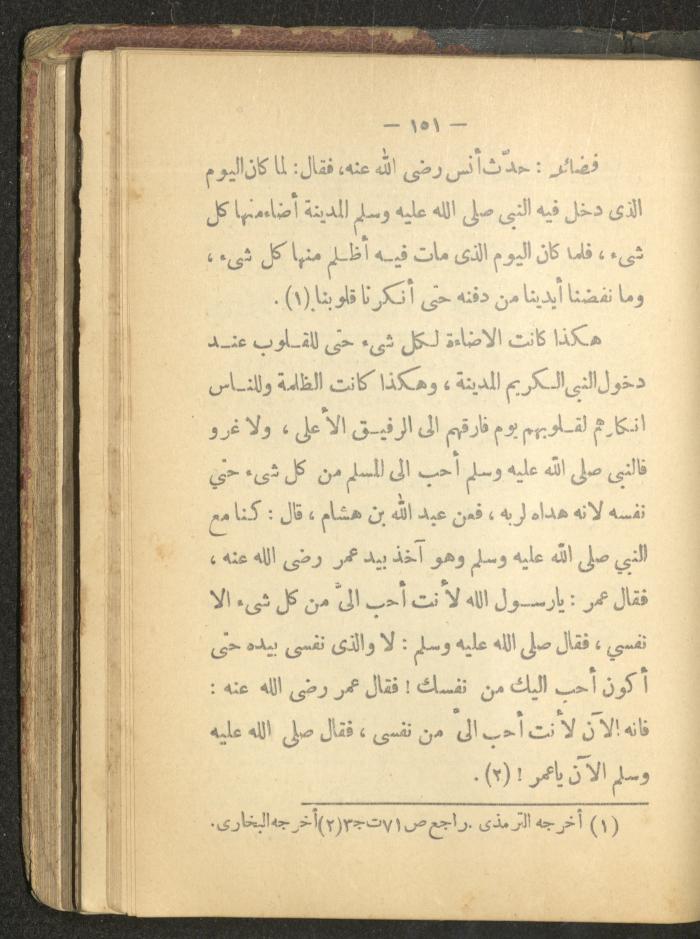 — ١٥١ —
فضائله : حدّث أنس رضى الله عنه، فقال : لما كان اليوم
الذى دخل فيه النبى صلى الله عليه وسلم المدينة أضاء منها كل
شىء ، فلما كان اليوم الذى مات فيـه أظـلم منها كل شىء ،
وما نفضنا أيدينا من دفنه حتى أنكرنا قلوبنا (١) .
هكذا كانت الاضاءة لكل شىء حتى للقـلوب عنـد
دخول النبى الـكريم المدينة ، وهكذا كانت الظلمة وللنـاس
انكارهم لقـلوبهم يوم فارقهم الى الرفيـق الأعلى ، ولا غرو
فالنبى صلى الله عليه وسلم أحب الى المسلم من كل شىء حتي
نفسه لانه هداه لربه ، فعن عبد الله بن هشام ، قال : كنا مع
النبي صلى الله عليه وسلم وهو آخذ بيد عمر رضى الله عنه ،
فقال عمر : يارسـول الله لأنت أحب الىَّ من كل شىء الا
نفسي ، فقال صلى الله عليه وسلم : لا والذى نفسى بيده حتى
أكون أحب اليك من نفسك ! فقال عمر رضى الله عنه :
فانه الآن لأنت أحب الىَّ من نفسى ، فقال صلى الله عليه
وسلم الآن ياعمر ! (٢) .
(١) أخرجه الترمذى . راجع ص ٧١ ت ج ٣ (٢) أخرجه البخارى .